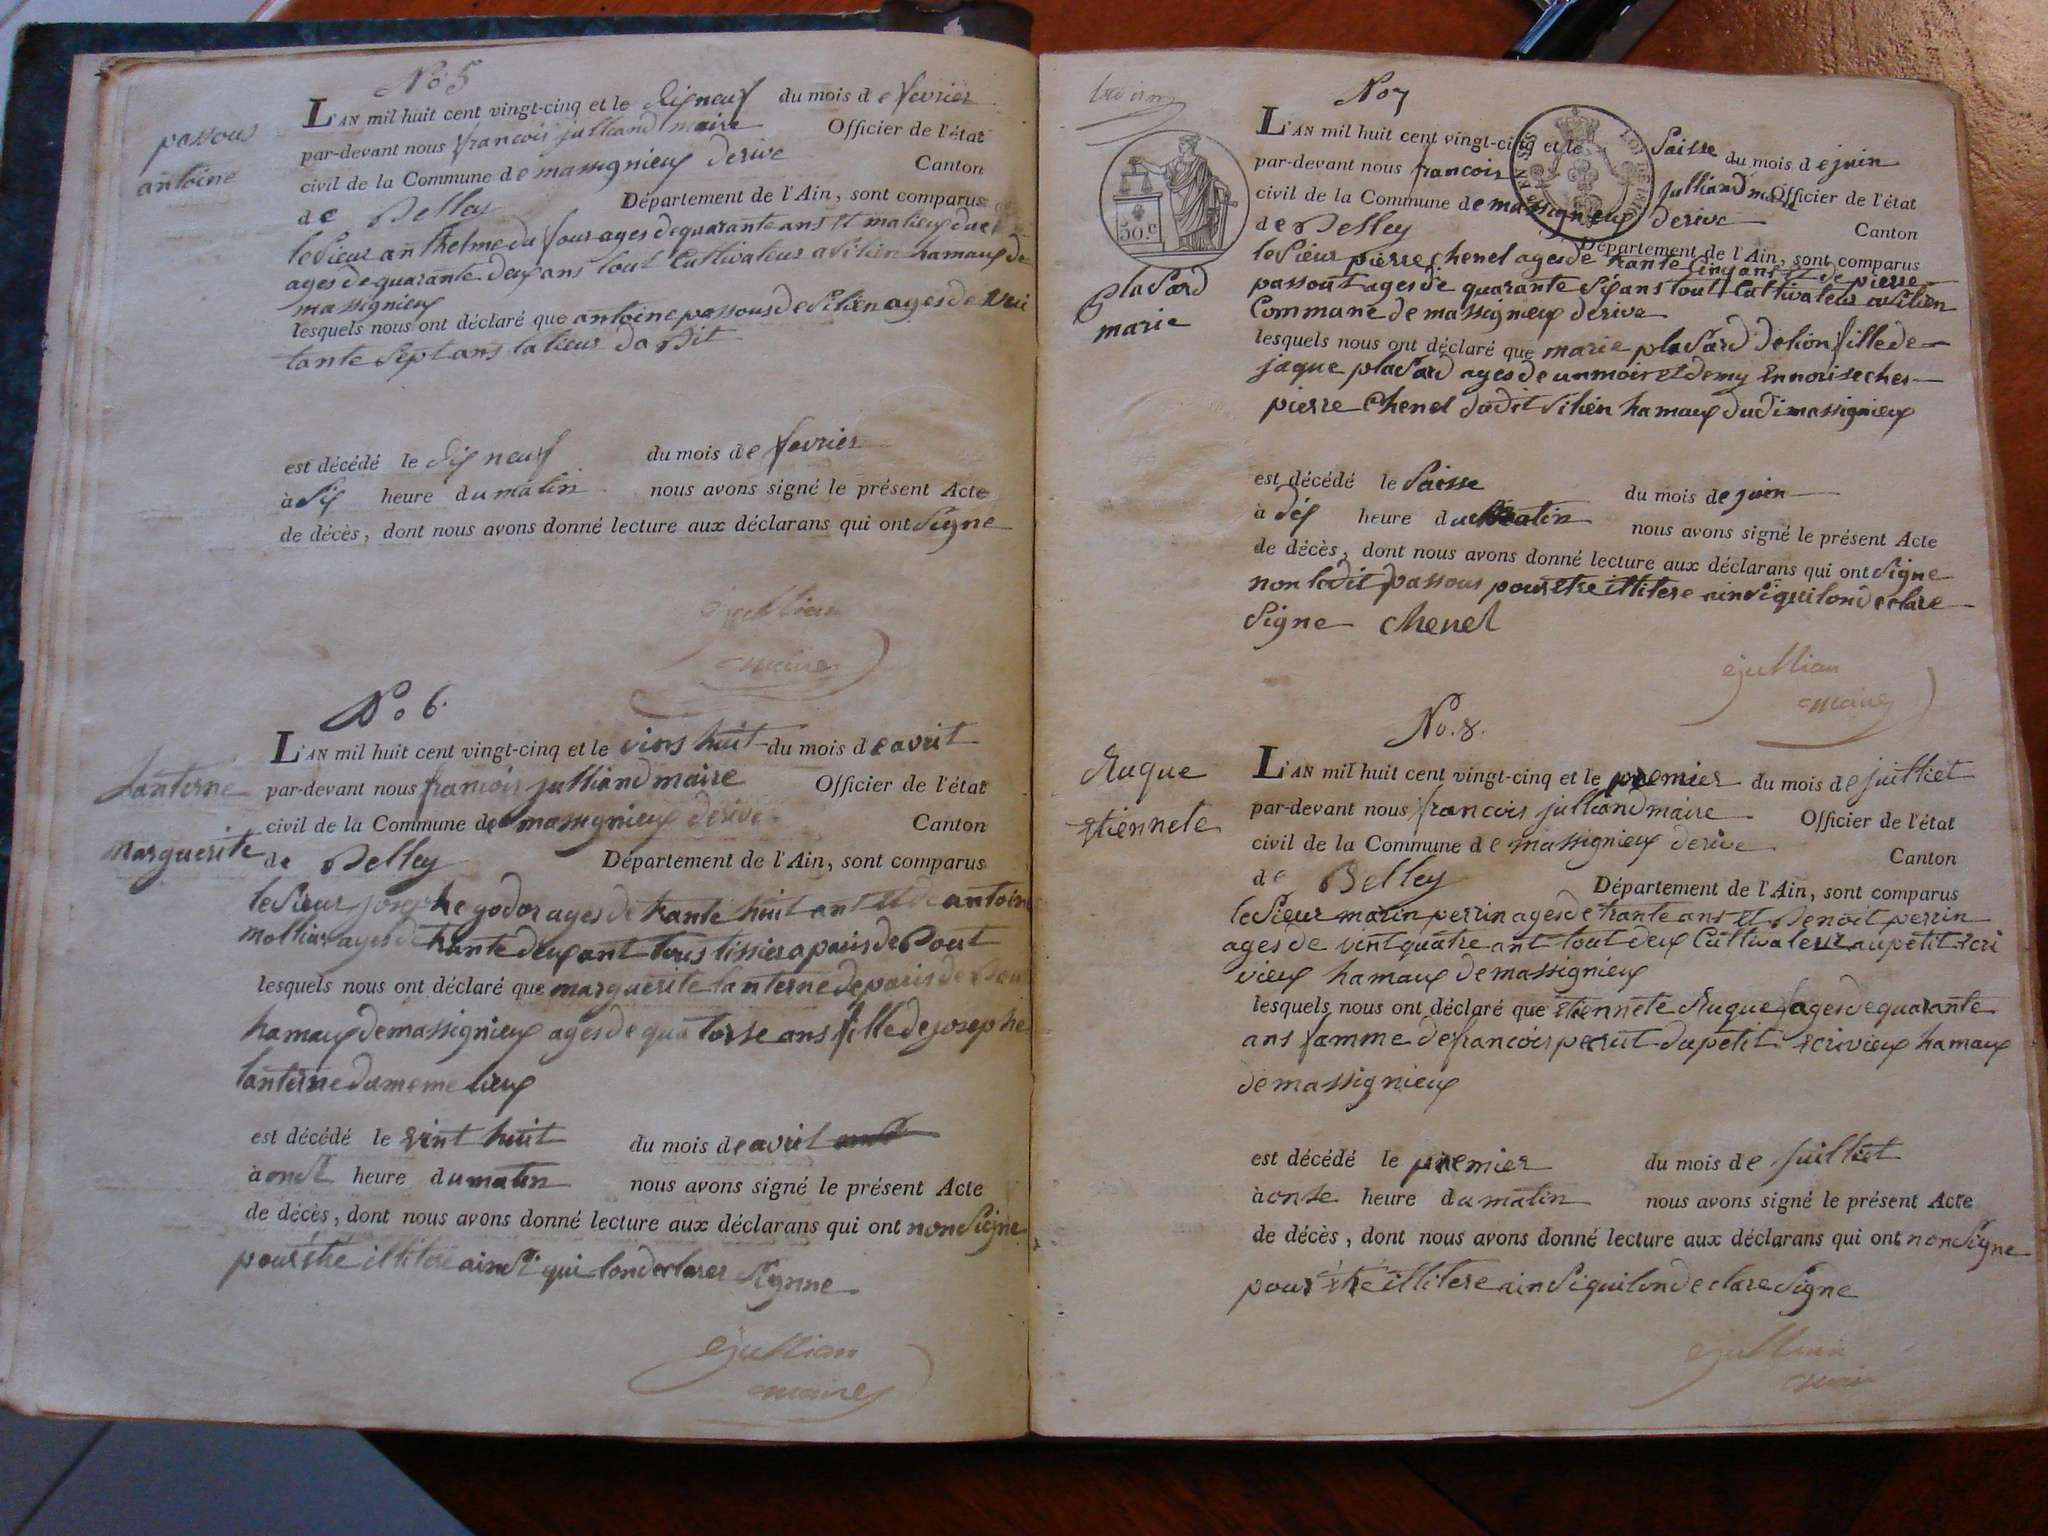 No 5
passous
antoine
L'AN mil huit cent vingt-cinq et le dix neuf du mois de fevrier
par-devant nous francois julliand maire Officier de l'état
civil de la Commune de massignieux derive Canton
de Belley Département de l'Ain, sont comparus
le Sieur anthelme du four ages de quarante ans et
ages de quarante deux ans tout Cultivateur a Silien hamaux de
massignieux
lesquels nous ont déclaré que antoine passous de Silien ages de
tante Sept ans
est décédé le dix neuf du mois de fevrier
à Six heure du matin nous avons signé le présent Acte
de décès, dont nous avons donné lecture aux déclarans qui ont Signe
ejullian
maire
No 6.
Lanterne
marguerite
L'AN mil huit cent vingt-cinq et le vins huit du mois de avril
par-devant nous francois julliand maire Officier de l'état
civil de la Commune de massignieux derive Canton
de Belley Département de l'Ain, sont comparus
le Sieur josephe godor ages de trante huit ant et de antoin
mollier ages de trante deux ant tous tissier a paris de Bout
lesquels nous ont déclaré que marguerite lanterne de paris de
hamaux de massignieux ages de qua torse ans fille de josephe
lanterne du meme lieux
est décédé le vint huit du mois de avril
à heure du matin nous avons signé le présent Acte
de décès, dont nous avons donné lecture aux déclarans qui ont non Signe
pour être illitere ainsi qui lon declarer Signne
ejullian
maire
No 7
50.c
plasard
marie
L'AN mil huit cent vingt-cinq et le Saisse du mois de juin
par-devant nous francois julliand maire Officier de l'état
civil de la Commune de massignieux derive Canton
de Belley Département de l'Ain, sont comparus
le Sieur pierre chenel ages de trante Cinq ans et de pierre
passout ages de quarante Six ans tout Cultivateur a Silien
Commane de massignieux derive
lesquels nous ont déclaré que marie plasard delion fille de
jaque plasard ages de un moir et demy Ennorise ches
pierre Chenel dudit Silien hamaux dudi massignieux
est décédé le Saisse du mois de juin
à dix heure du Matin nous avons signé le présent Acte
de décès, dont nous avons donné lecture aux déclarans qui ont Signe
non ledit passous pour etre illitere ainsi qui lon declare
Signe chenel
ejullian
maire
No. 8.
Ruque
etiennete
L'AN mil huit cent vingt-cinq et le premier du mois de juilliet
par-devant nous francois julliand maire Officier de l'état
civil de la Commune de massignieux derive Canton
de Belley Département de l'Ain, sont comparus
le Sieur marin perrin ages de trante ans et Benoit perrin
ages de vint quatre ant tout deux Cultivateur au petit ecri
vieux hamaux de massignieux
lesquels nous ont déclaré que etiennete Ruque ages de quarante
ans famme de francois perrut du petit ecrivieux hamaux
de massignieux
est décédé le premier du mois de juilliet
à onse heure du matin nous avons signé le présent Acte
de décès, dont nous avons donné lecture aux déclarans qui ont non Signe
pour être illitere ainsi qui lon declare Signe
ejullian
maire